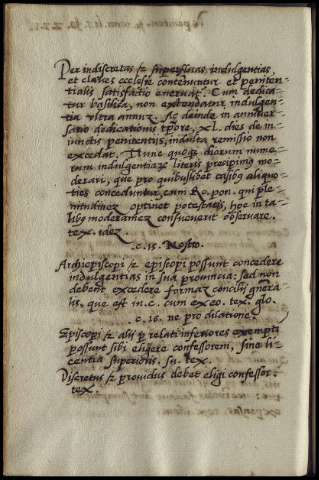 Per indiscretas & superfluas, indulgentias
et claves ecclesiæ contemnuntur et peniten-
tialis satisfactio enervat. Cum dedica-
tur basilica, non extendatur indulgen-
tia ultra annum. Ac deinde in anniver-
sario dedicationis tpore, XL. dies de in-
iunctis penitentiis, indulta remissio non
excedat. Hunc quoque dierum nume-
rum indulgentiarum literis precipimus mo-
derari, que pro quibuslibet casibus aliquo-
ties conceduntur, cum Ro. pon. qui ple-
nitudinem optinet potestatis, hoc in ta-
libus moderamen consueverit observare.
tex. idez.
.c. 15. Nostro.
Archiepiscopi & episcopi possunt concedere
indulgentias in sua provincia: sed non
debent excedere formam concilii genera-
lis, que est in .c. cum ex eo. tex. glo.
.c. 16. ne pro dilatione.
Episcopi & alii prelati inferiores exempti
possunt sibi eligere confessorem, sine li-
centia superioris. su. tex.
Discretus & providus debet eligi confessor.
tex.